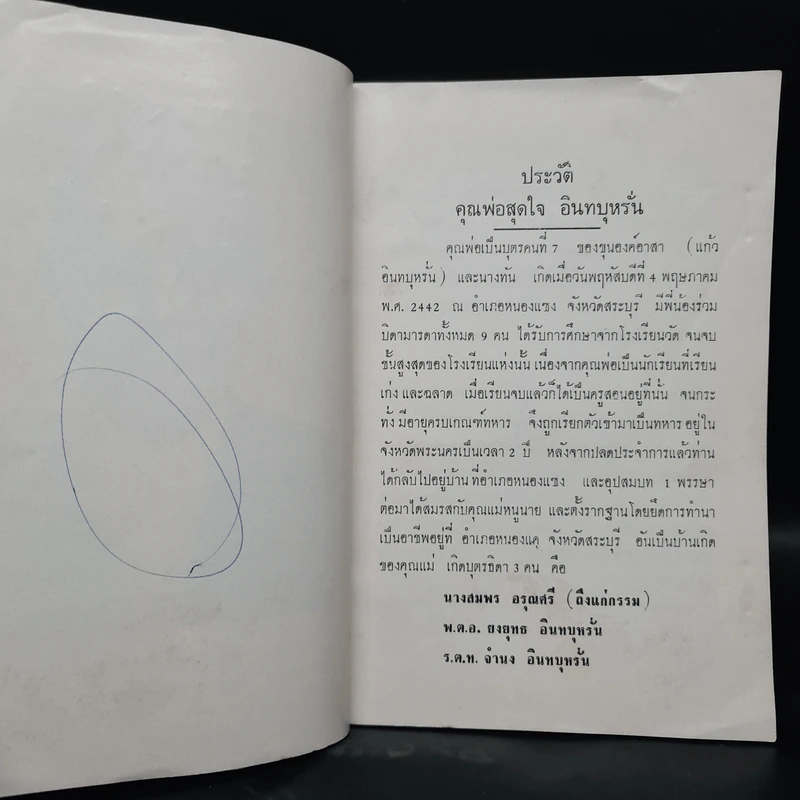 ประวัติ
คุณพ่อสุดใจ อินทบุหรั่น
คุณพ่อเป็นบุตรคนที่ 7 ของขุนองค์อาสา (แก้ว
อินทบุหรั่น) และนางทัน เกิดเมื่อวันพฤหัสบดีที่ 4 พฤษภาคม
พ.ศ. 2442 ณ อำเภอหนองแซง จังหวัดสระบุรี มีพี่น้องร่วม
บิดามารดาทั้งหมด 9 คน ได้รับการศึกษาจากโรงเรียนวัด จนจบ
ชั้นสูงสุดของโรงเรียนแห่งนั้น เนื่องจากคุณพ่อเป็นนักเรียนที่เรียน
เก่ง และฉลาด เมื่อเรียนจบแล้วก็ได้เป็นครูสอนอยู่ที่นั่น จนกระ
ทั่ง มีอายุครบเกณฑ์ทหาร จึงถูกเรียกตัวเข้ามาเป็นทหาร อยู่ใน
จังหวัดพระนครเป็นเวลา 2 ปี หลังจากปลดประจำการแล้วท่าน
ได้กลับไปอยู่บ้าน ที่อำเภอหนองแซง และอุปสมบท 1 พรรษา
ต่อมาได้สมรสกับคุณแม่หนูนาย และตั้งรากฐาน โดยยึดการทำนา
เป็นอาชีพอยู่ที่ อำเภอหนองแค จังหวัดสระบุรี อันเป็นบ้านเกิด
ของคุณแม่ เกิดบุตรธิดา 3 คน คือ
นางสมพร อรุณศรี (ถึงแก่กรรม)
พ.ต.อ. ยงยุทธ อินทบุหรั่น
ร.ต.ท. จำนง อินทบุหรั่น